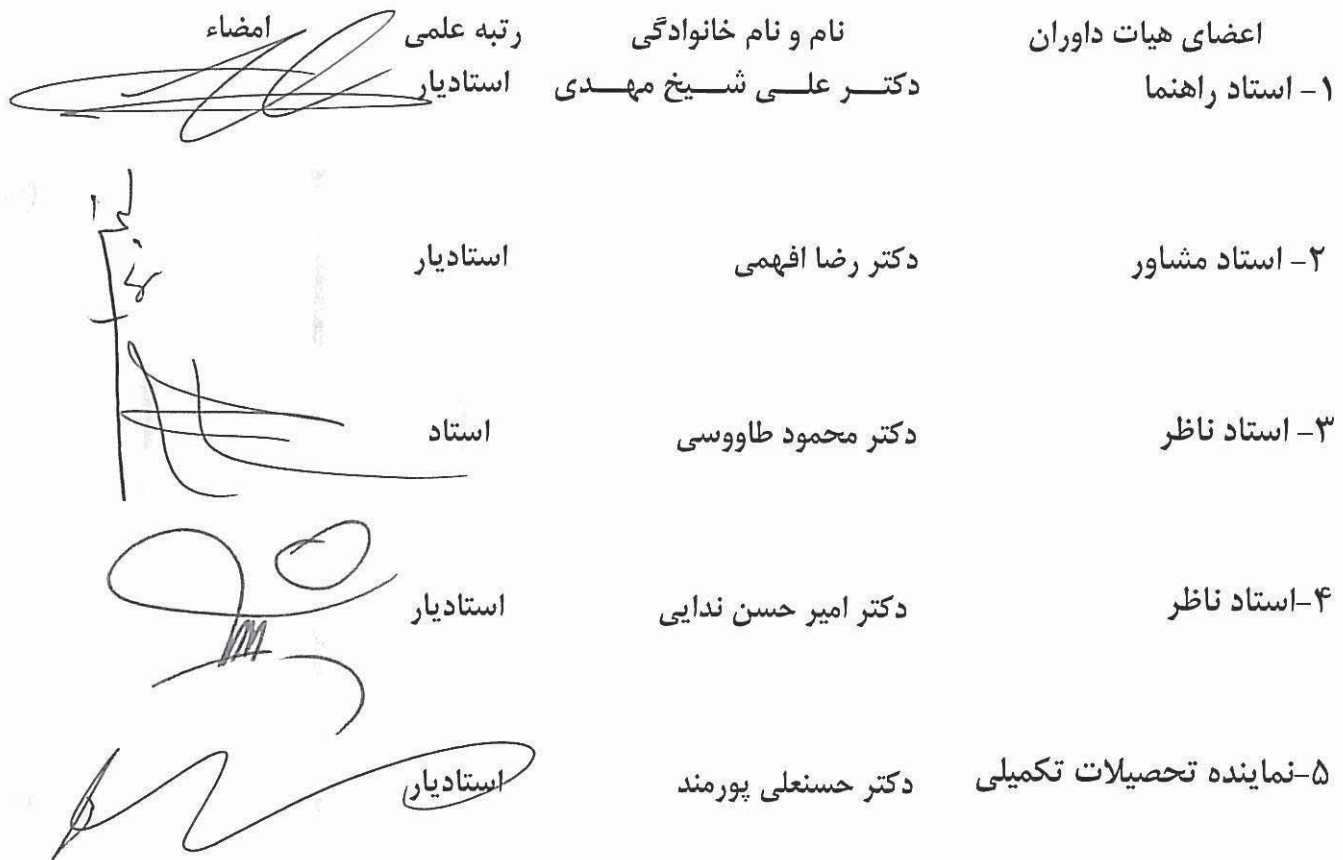 اعضای هیات داوران نام و نام خانوادگی رتبه علمی امضاء
۱- استاد راهنما دکتـــر علـــی شـــیخ مهـــدی استادیار
۲- استاد مشاور دکتر رضا افهمی استادیار
۳- استاد ناظر دکتر محمود طاووسی استاد
۴-استاد ناظر دکتر امیر حسن ندایی استادیار
۵-نماینده تحصیلات تکمیلی دکتر حسنعلی پورمند استادیار